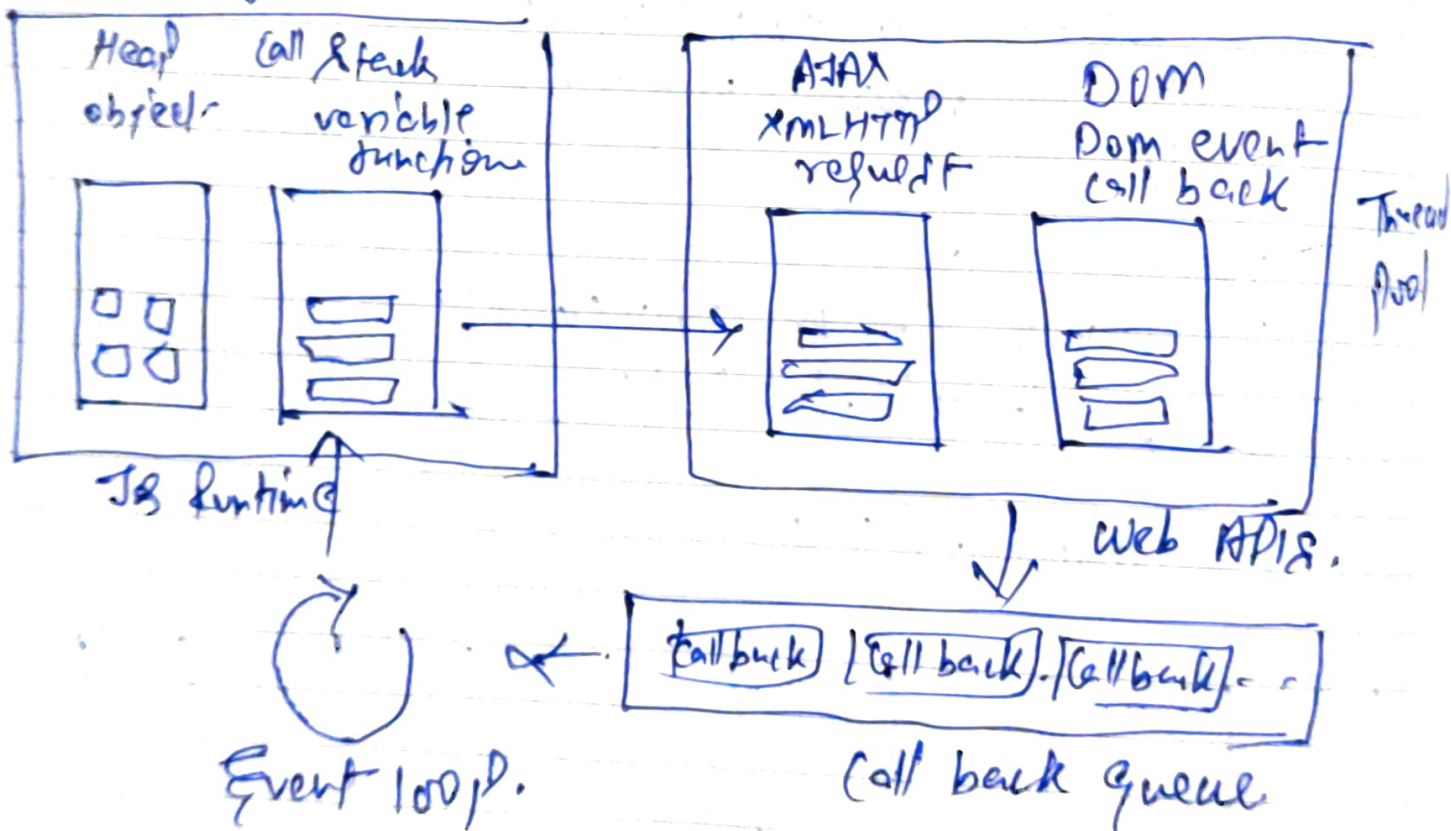 Heap
objects
Call Stack
variable
function
JS Runtime
AJAX
XMLHTTP
request
DOM
Dom event
Call back
Thread
Pool
Web APIs.
Callback | Call back . | Callback . . .
Event loop.
Call back queue